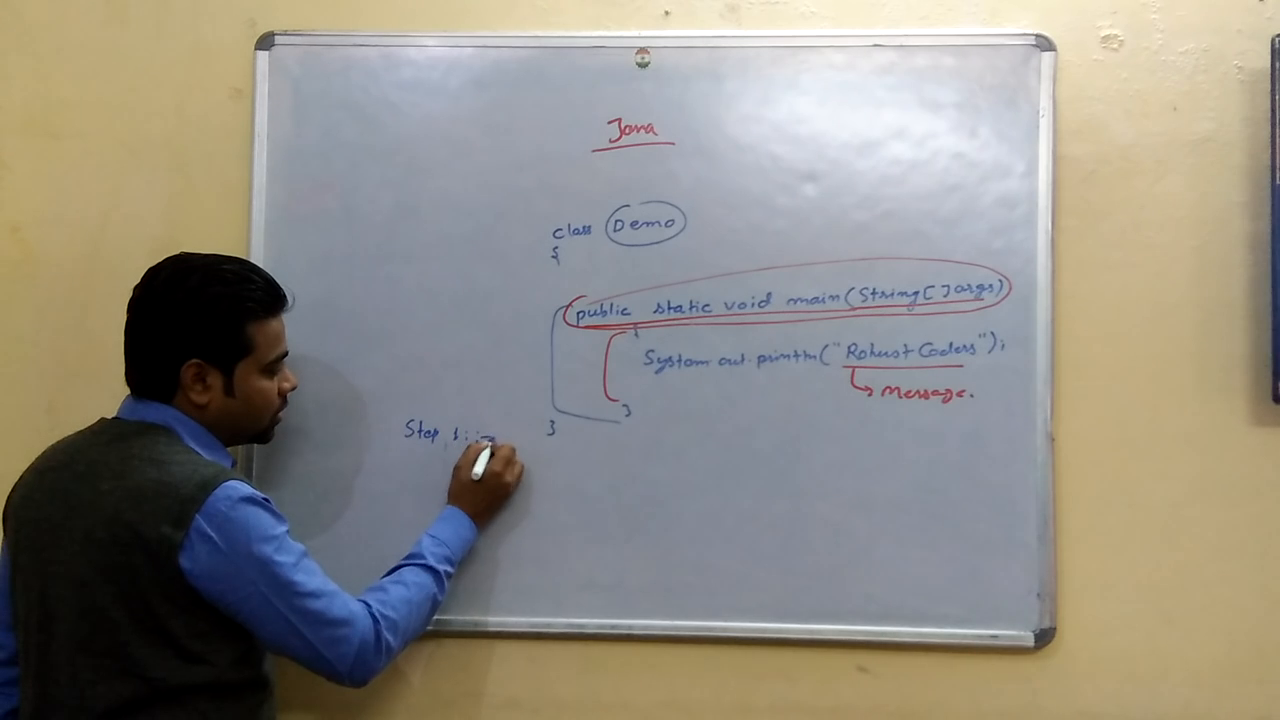 Java
class Demo
{
public static void main(String[]args)
{
System.out.println("Robust Coders");
Message.
}
}
Step 1:-